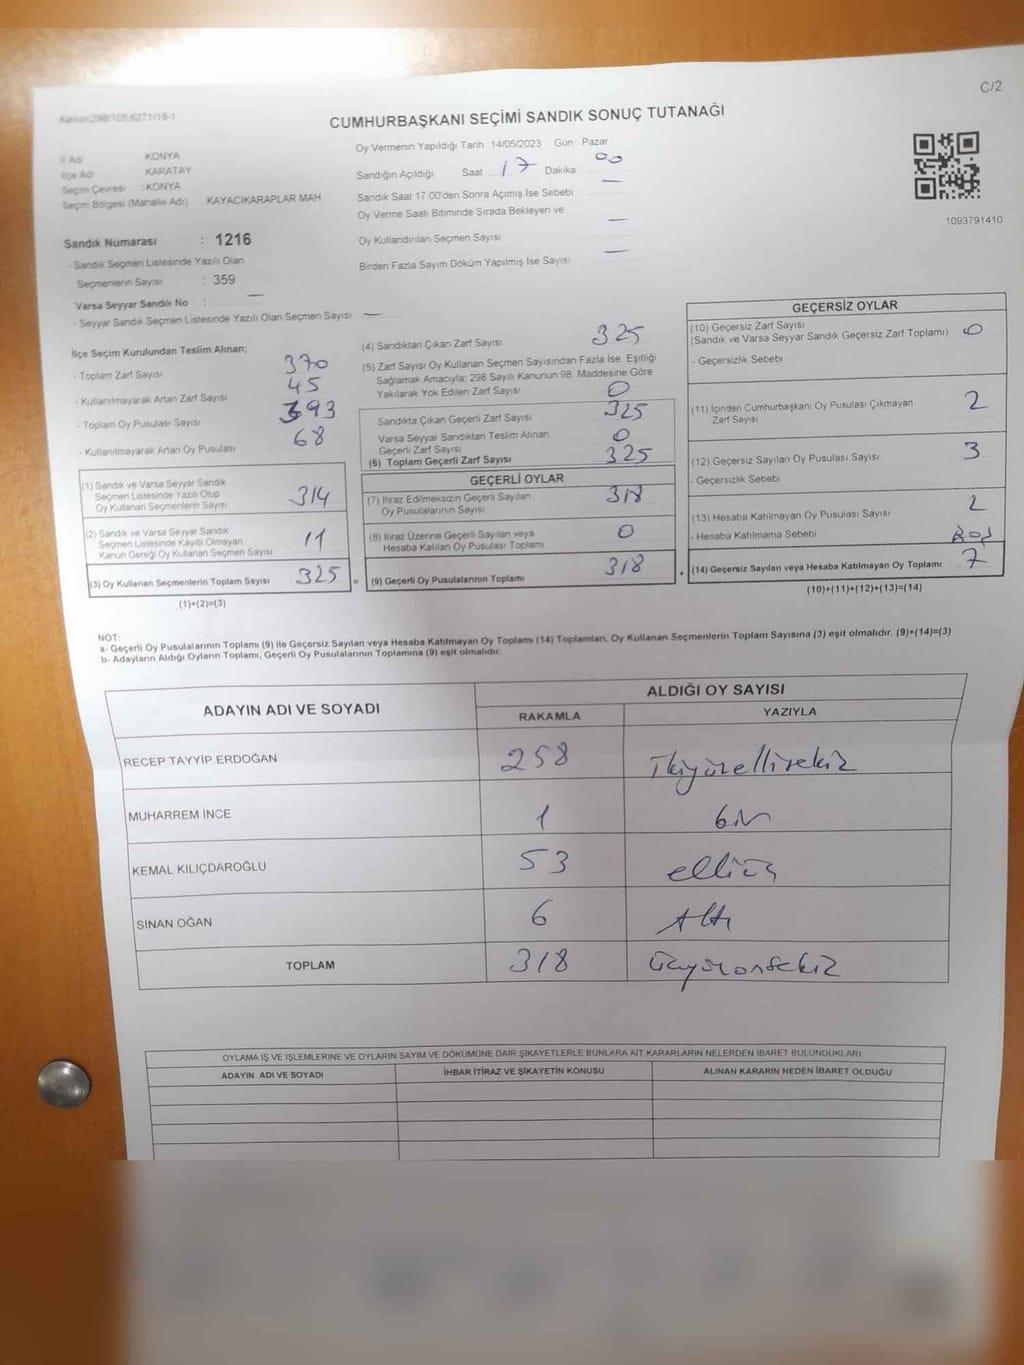 C/2
Kanun:298/105,6271/18-1
CUMHURBAŞKANI SEÇİMİ SANDIK SONUÇ TUTANAĞI
İl Adı KONYA
İlçe Adı KARATAY
Seçim Çevresi : KONYA
Seçim Bölgesi (Mahalle Adı) KAYACIKARAPLAR MAH
Oy Vermenin Yapıldığı Tarih :14/05/2023 Gün Pazar
Sandığın Açıldığı Saat 17 Dakika 00
Sandık Saat 17:00'den Sonra Açımış İse Sebebi —
Oy Verme Saati Bitiminde Sırada Bekleyen ve
Oy Kullandırılan Seçmen Sayısı —
Birden Fazla Sayım Döküm Yapılmış İse Sayısı —
1093791410
Sandık Numarası : 1216
- Sandık Seçmen Listesinde Yazılı Olan
Seçmenlerin Sayısı : 359
Varsa Seyyar Sandık No : —
- Seyyar Sandık Seçmen Listesinde Yazılı Olan Seçmen Sayısı —
İlçe Seçim Kurulundan Teslim Alınan;
- Toplam Zarf Sayısı 370
- Kullanılmayarak Artan Zarf Sayısı 45
- Toplam Oy Pusulası Sayısı 393
- Kullanılmayarak Artan Oy Pusulası 68
(1) Sandık ve Varsa Seyyar Sandık
Seçmen Listesinde Yazılı Olup
Oy Kullanan Seçmenlerin Sayısı 314
(2) Sandık ve Varsa Seyyar Sandık
Seçmen Listesinde Kayıtlı Olmayan
Kanun Gereği Oy Kullanan Seçmen Sayısı 11
(3) Oy Kullanan Seçmenlerin Toplam Sayısı 325
(1)+(2)=(3)
(4) Sandıktan Çıkan Zarf Sayısı 325
(5) Zarf Sayısı Oy Kullanan Seçmen Sayısından Fazla İse, Eşitliği
Sağlamak Amacıyla; 298 Sayılı Kanunun 98. Maddesine Göre
Yakılarak Yok Edilen Zarf Sayısı 0
Sandıkta Çıkan Geçerli Zarf Sayısı 325
Varsa Seyyar Sandıktan Teslim Alınan
Geçerli Zarf Sayısı 0
(6) Toplam Geçerli Zarf Sayısı 325
GEÇERLİ OYLAR
(7) İtiraz Edilmeksizin Geçerli Sayılan
Oy Pusulalarının Sayısı 318
(8) İtiraz Üzerine Geçerli Sayılan veya
Hesaba Katılan Oy Pusulası Toplamı 0
= (9) Geçerli Oy Pusulalarının Toplamı 318
GEÇERSİZ OYLAR
(10) Geçersiz Zarf Sayısı
(Sandık ve Varsa Seyyar Sandık Geçersiz Zarf Toplamı) 0
- Geçersizlik Sebebi
(11) İçinden Cumhurbaşkanı Oy Pusulası Çıkmayan
Zarf Sayısı 2
(12) Geçersiz Sayılan Oy Pusulası Sayısı 3
- Geçersizlik Sebebi
(13) Hesaba Katılmayan Oy Pusulası Sayısı 2
- Hesaba Katılmama Sebebi Boş
+ (14) Geçersiz Sayılan veya Hesaba Katılmayan Oy Toplamı 7
(10)+(11)+(12)+(13)=(14)
NOT:
a- Geçerli Oy Pusulalarının Toplamı (9) ile Geçersiz Sayılan veya Hesaba Katılmayan Oy Toplamı (14) Toplamları, Oy Kullanan Seçmenlerin Toplam Sayısına (3) eşit olmalıdır. (9)+(14)=(3)
b- Adayların Aldığı Oyların Toplamı, Geçerli Oy Pusulalarının Toplamına (9) eşit olmalıdır.
ADAYIN ADI VE SOYADI ALDIĞI OY SAYISI
RAKAMLA YAZIYLA
RECEP TAYYİP ERDOĞAN 258 İkiyüzellisekiz
MUHARREM İNCE 1 bir
KEMAL KILIÇDAROĞLU 53 elliüç
SİNAN OĞAN 6 Altı
TOPLAM 318 üçyüzonsekiz
OYLAMA İŞ VE İŞLEMLERİNE VE OYLARIN SAYIM VE DÖKÜMÜNE DAİR ŞİKAYETLERLE BUNLARA AİT KARARLARIN NELERDEN İBARET BULUNDUKLARI
ADAYIN ADI VE SOYADI İHBAR İTİRAZ VE ŞİKAYETİN KONUSU ALINAN KARARIN NEDEN İBARET OLDUĞU